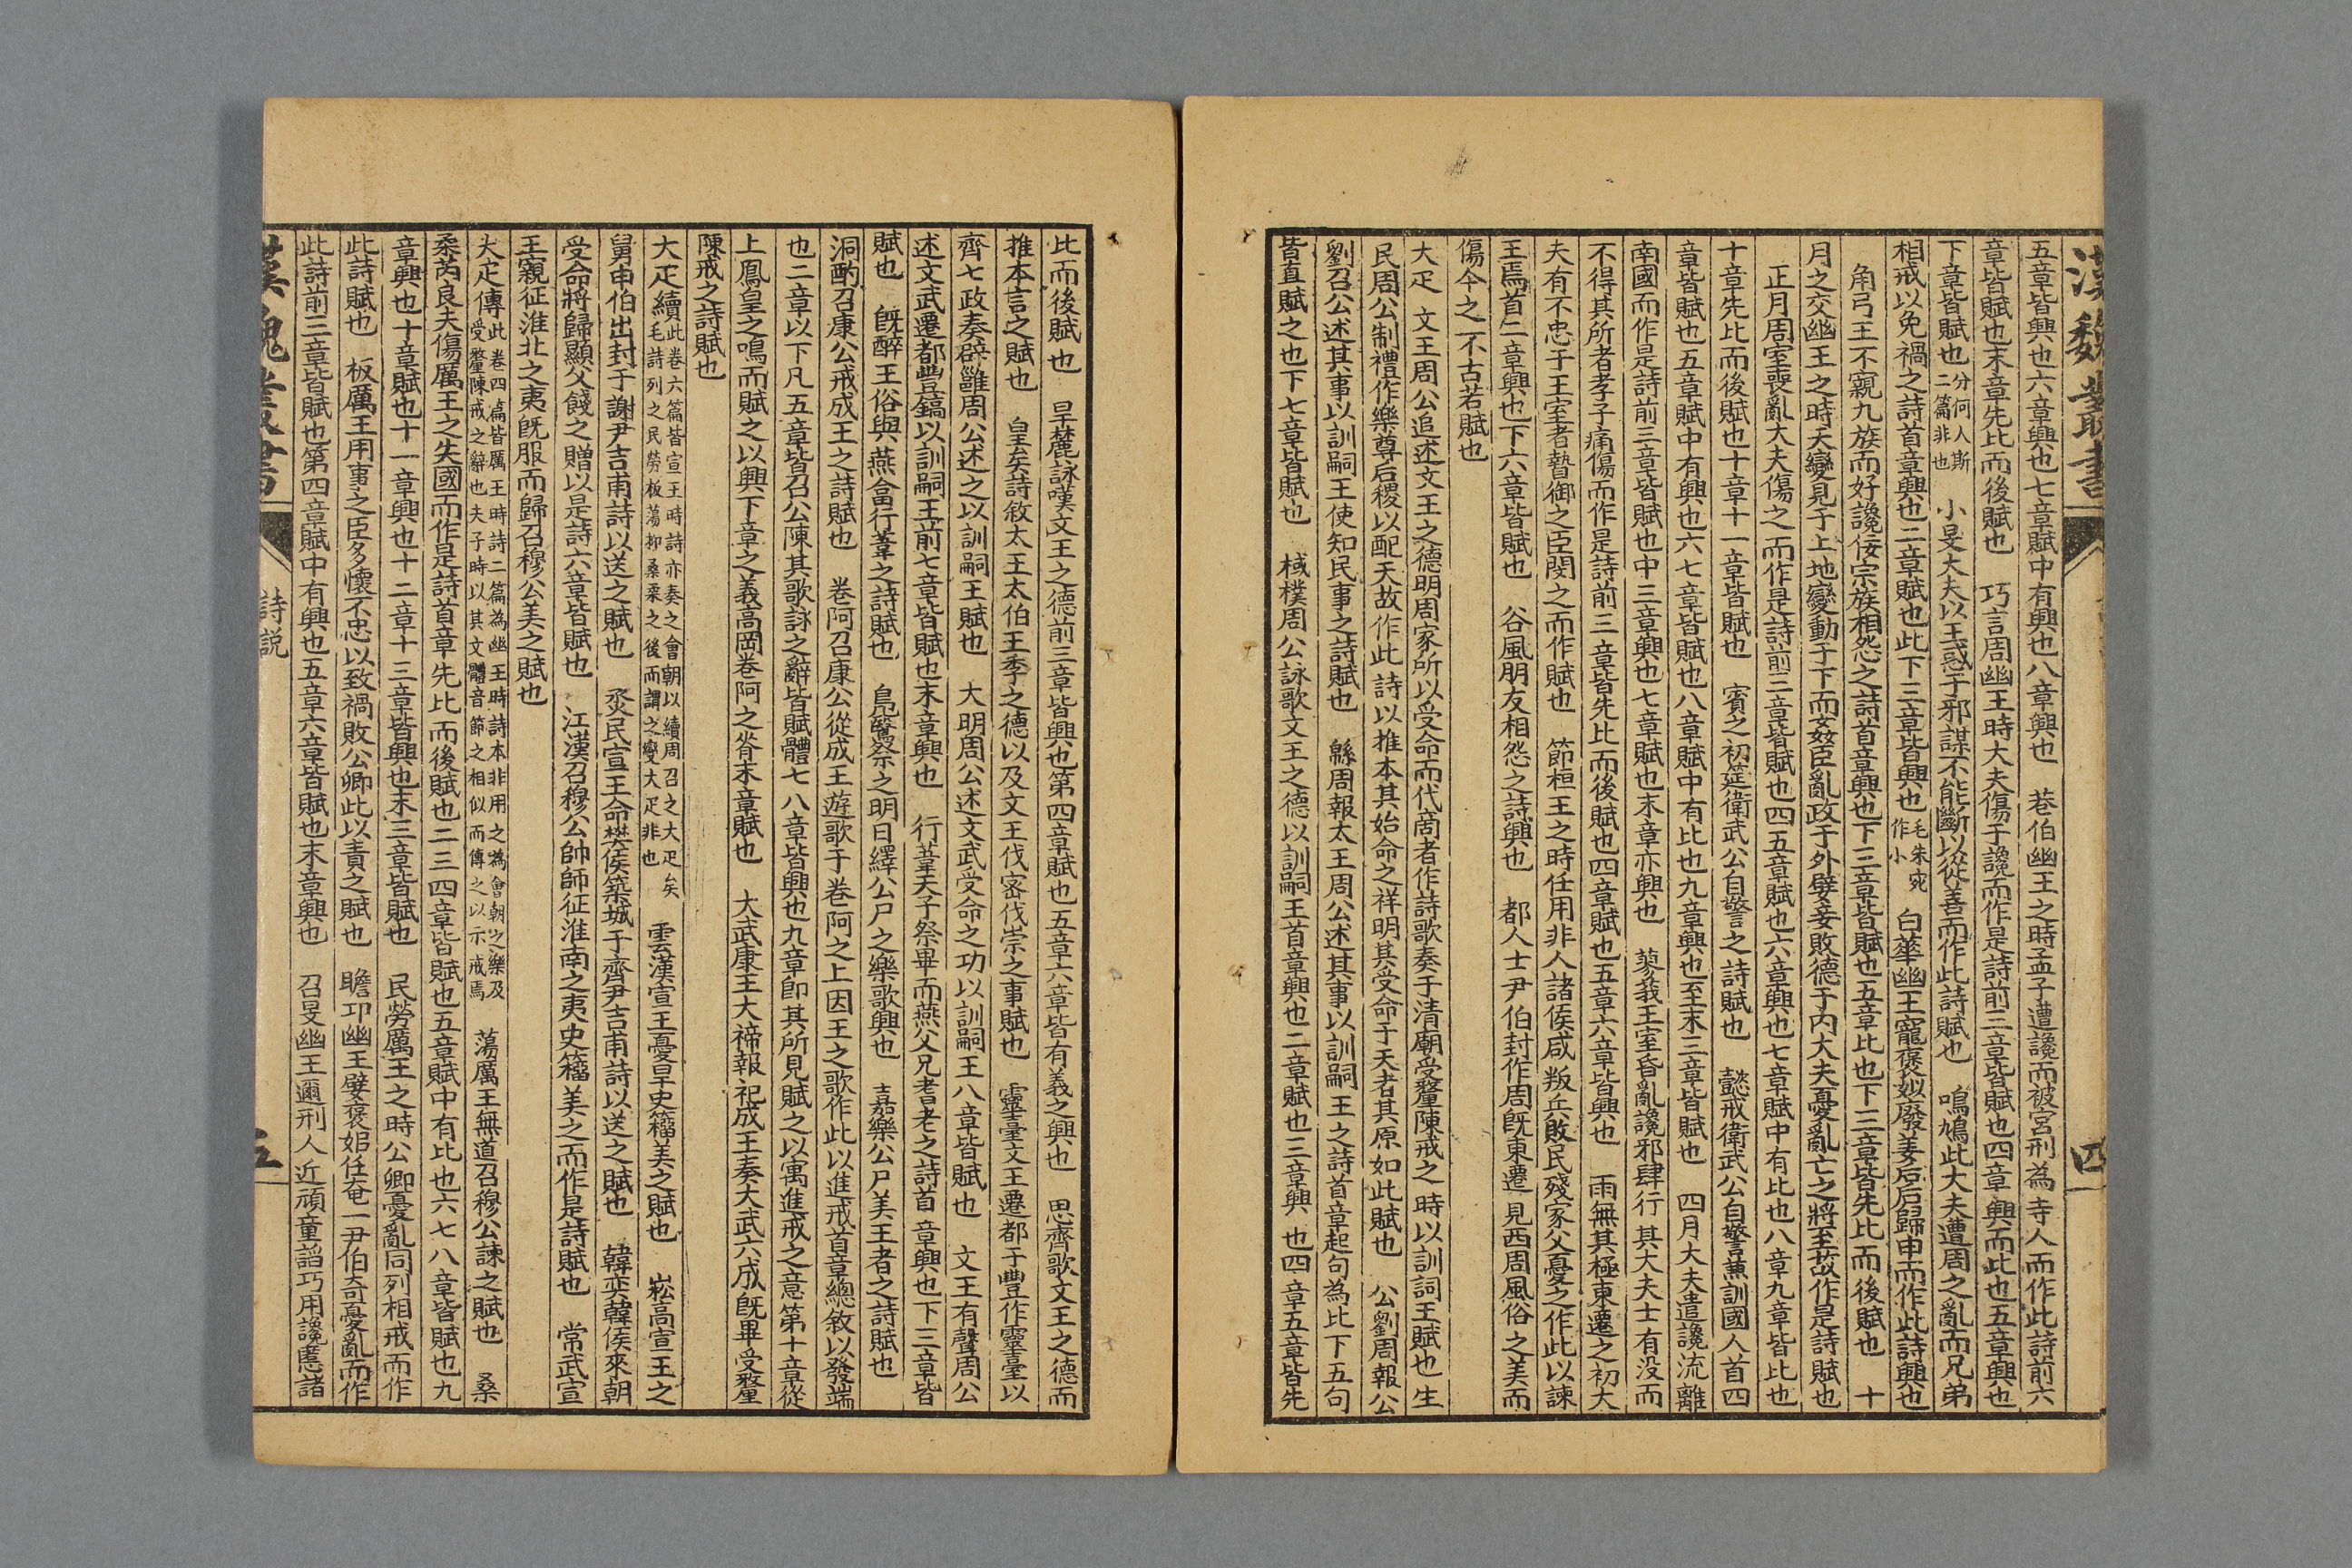 漢魏叢書
四
五章皆興也六章興也七章賦中有興也八章興也　巷伯幽王之時孟子遭讒而被宮刑為寺人而作此詩前六
章皆賦也末章先比而後賦也　巧言周幽王時大夫傷于讒而作是詩前三章皆賦也四章興而比也五章興也
下章皆賦也分何人斯二篇非也　小旻大夫以王惑于邪謀不能斷以從善而作此詩賦也　鳴鳩此大夫遭周之亂而兄弟
相戒以免禍之詩首章興也二章賦也此下三章皆興也毛朱宛作小　白華幽王寵褒姒廢姜后后歸申而作此詩興也
角弓王不親九族而好讒佞宗族相怨之詩首章興也下三章皆賦也五章比也下三章皆先比而後賦也　十
月之交幽王之時天變見于上地變動于下而姦臣亂政于外嬖妾敗德于内大夫憂亂亡之將至故作是詩賦也
正月周室喪亂大夫傷之而作是詩前二章皆賦也四五章賦也六章興也七章賦中有比也八章九章皆比也
十章先比而後賦也十章十一章皆賦也　賓之初筵衛武公自警之詩賦也　懿戒衛武公自警蒹訓國人首四
章皆賦也五章賦中有興也六七章皆賦也八章賦中有比也九章興也至末三章皆賦也　四月大夫遣讒流離
南國而作是詩前三章皆賦也中三章興也七章賦也末章亦興也　蓼莪王室昏亂讒邪肆行其大夫士有没而
不得其所者孝子痛傷而作是詩前三章皆先比而後賦也四章賦也五章六章皆興也　雨無其極東遷之初大
夫有不忠于王室者暬御之臣閔之而作賦也　節桓王之時任用非人諸侯咸叛丘敗民殘家父憂之作此以諫
王焉首二章興也下六章皆賦也　谷風朋友相怨之詩興也　都人士尹伯封作周旣東遷見西周風俗之美而
傷今之不古若賦也
大疋　文王周公追述文王之德明周家所以受命而代啇者作詩歌奏于清廟受釐陳戒之時以訓詞王賦也生
民周公制禮作樂尊后稷以配天故作此詩以推本其始命之祥明其受命于天者其原如此賦也　公劉周報公
劉召公述其事以訓嗣王使知民事之詩賦也　緜周報太王周公述其事以訓嗣王之詩首章起句為比下五句
皆直賦之也下七章皆賦也　棫樸周公詠歌文王之德以訓嗣王首章興也二章賦也三章興也四章五章皆先
比而後賦也　旱麓詠嘆文王之德前三章皆興也第四章賦也五章六章皆有義之興也　思齊歌文王之德而
推本言之賦也　皇矣詩敘太王太伯王季之德以及文王伐密伐崇之事賦也　靈臺文王遷都于豐作靈臺以
齊七政奏辟雝周公述之以訓嗣王賦也　大明周公述文武受命之功以訓嗣王八章皆賦也　文王有聲周公
述文武遷都豐鎬以訓嗣王前七章皆賦也末章興也　行葦天子祭畢而燕父兄耆老之詩首章興也下三章皆
賦也　旣醉王俗與燕畣行葦之詩賦也　鳧鷖祭之明日繹公尸之樂歌興也　嘉樂公尸美王者之詩賦也
泂酌召康公戒成王之詩賦也　卷阿召康公從成王遊歌于卷阿之上因王之歌作此以進戒首章總敘以發端
也二章以下凡五章皆召公陳其歌詠之辭皆賦體七八章皆興也九章卽其所見賦之以寓進戒之意第十章從
上鳳皇之鳴而賦之以興下章之義高岡卷阿之脊末章賦也　大武康王大禘報祀成王奏大武六成旣畢受釐
陳戒之詩賦也
大疋續此卷六篇皆宣王時詩亦奏之會朝以續周召之大疋矣毛詩列之民勞板蕩抑桑柔之後而謂之變大疋非也　雲漢宣王憂旱史籀美之賦也　崧高宣王之
舅申伯出封于謝尹吉甫詩以送之賦也　烝民宣王命樊侯築城于齊尹吉甫詩以送之賦也　韓奕韓侯來朝
受命將歸顯父餞之贈以是詩六章皆賦也　江漢召穆公帥師征淮南之夷史籀美之而作是詩賦也　常武宣
王親征淮北之夷旣服而歸召穆公美之賦也
大疋傳此卷四篇皆厲王時詩二篇為幽王時詩本非用之為會朝之樂及受釐陳戒之辭也夫子時以其文體音節之相似而傳之以示戒焉　蕩厲王無道召穆公諫之賦也　桑
柔芮良夫傷厲王之失國而作是詩首章先比而後賦也二三四章皆賦也五章賦中有比也六七八章皆賦也九
章興也十章賦也十一章興也十二章十三章皆興也末三章皆賦也　民勞厲王之時公卿憂亂同列相戒而作
此詩賦也　板厲王用事之臣多懷不忠以致禍敗公卿此以責之賦也　瞻卬幽王嬖褒姒任奄一尹伯奇憂亂而作
此詩前三章皆賦也第四章賦中有興也五章六章皆賦也末章興也　召旻幽王邇刑人近頑童謟巧用讒慝諸
漢魏叢書
詩説
五